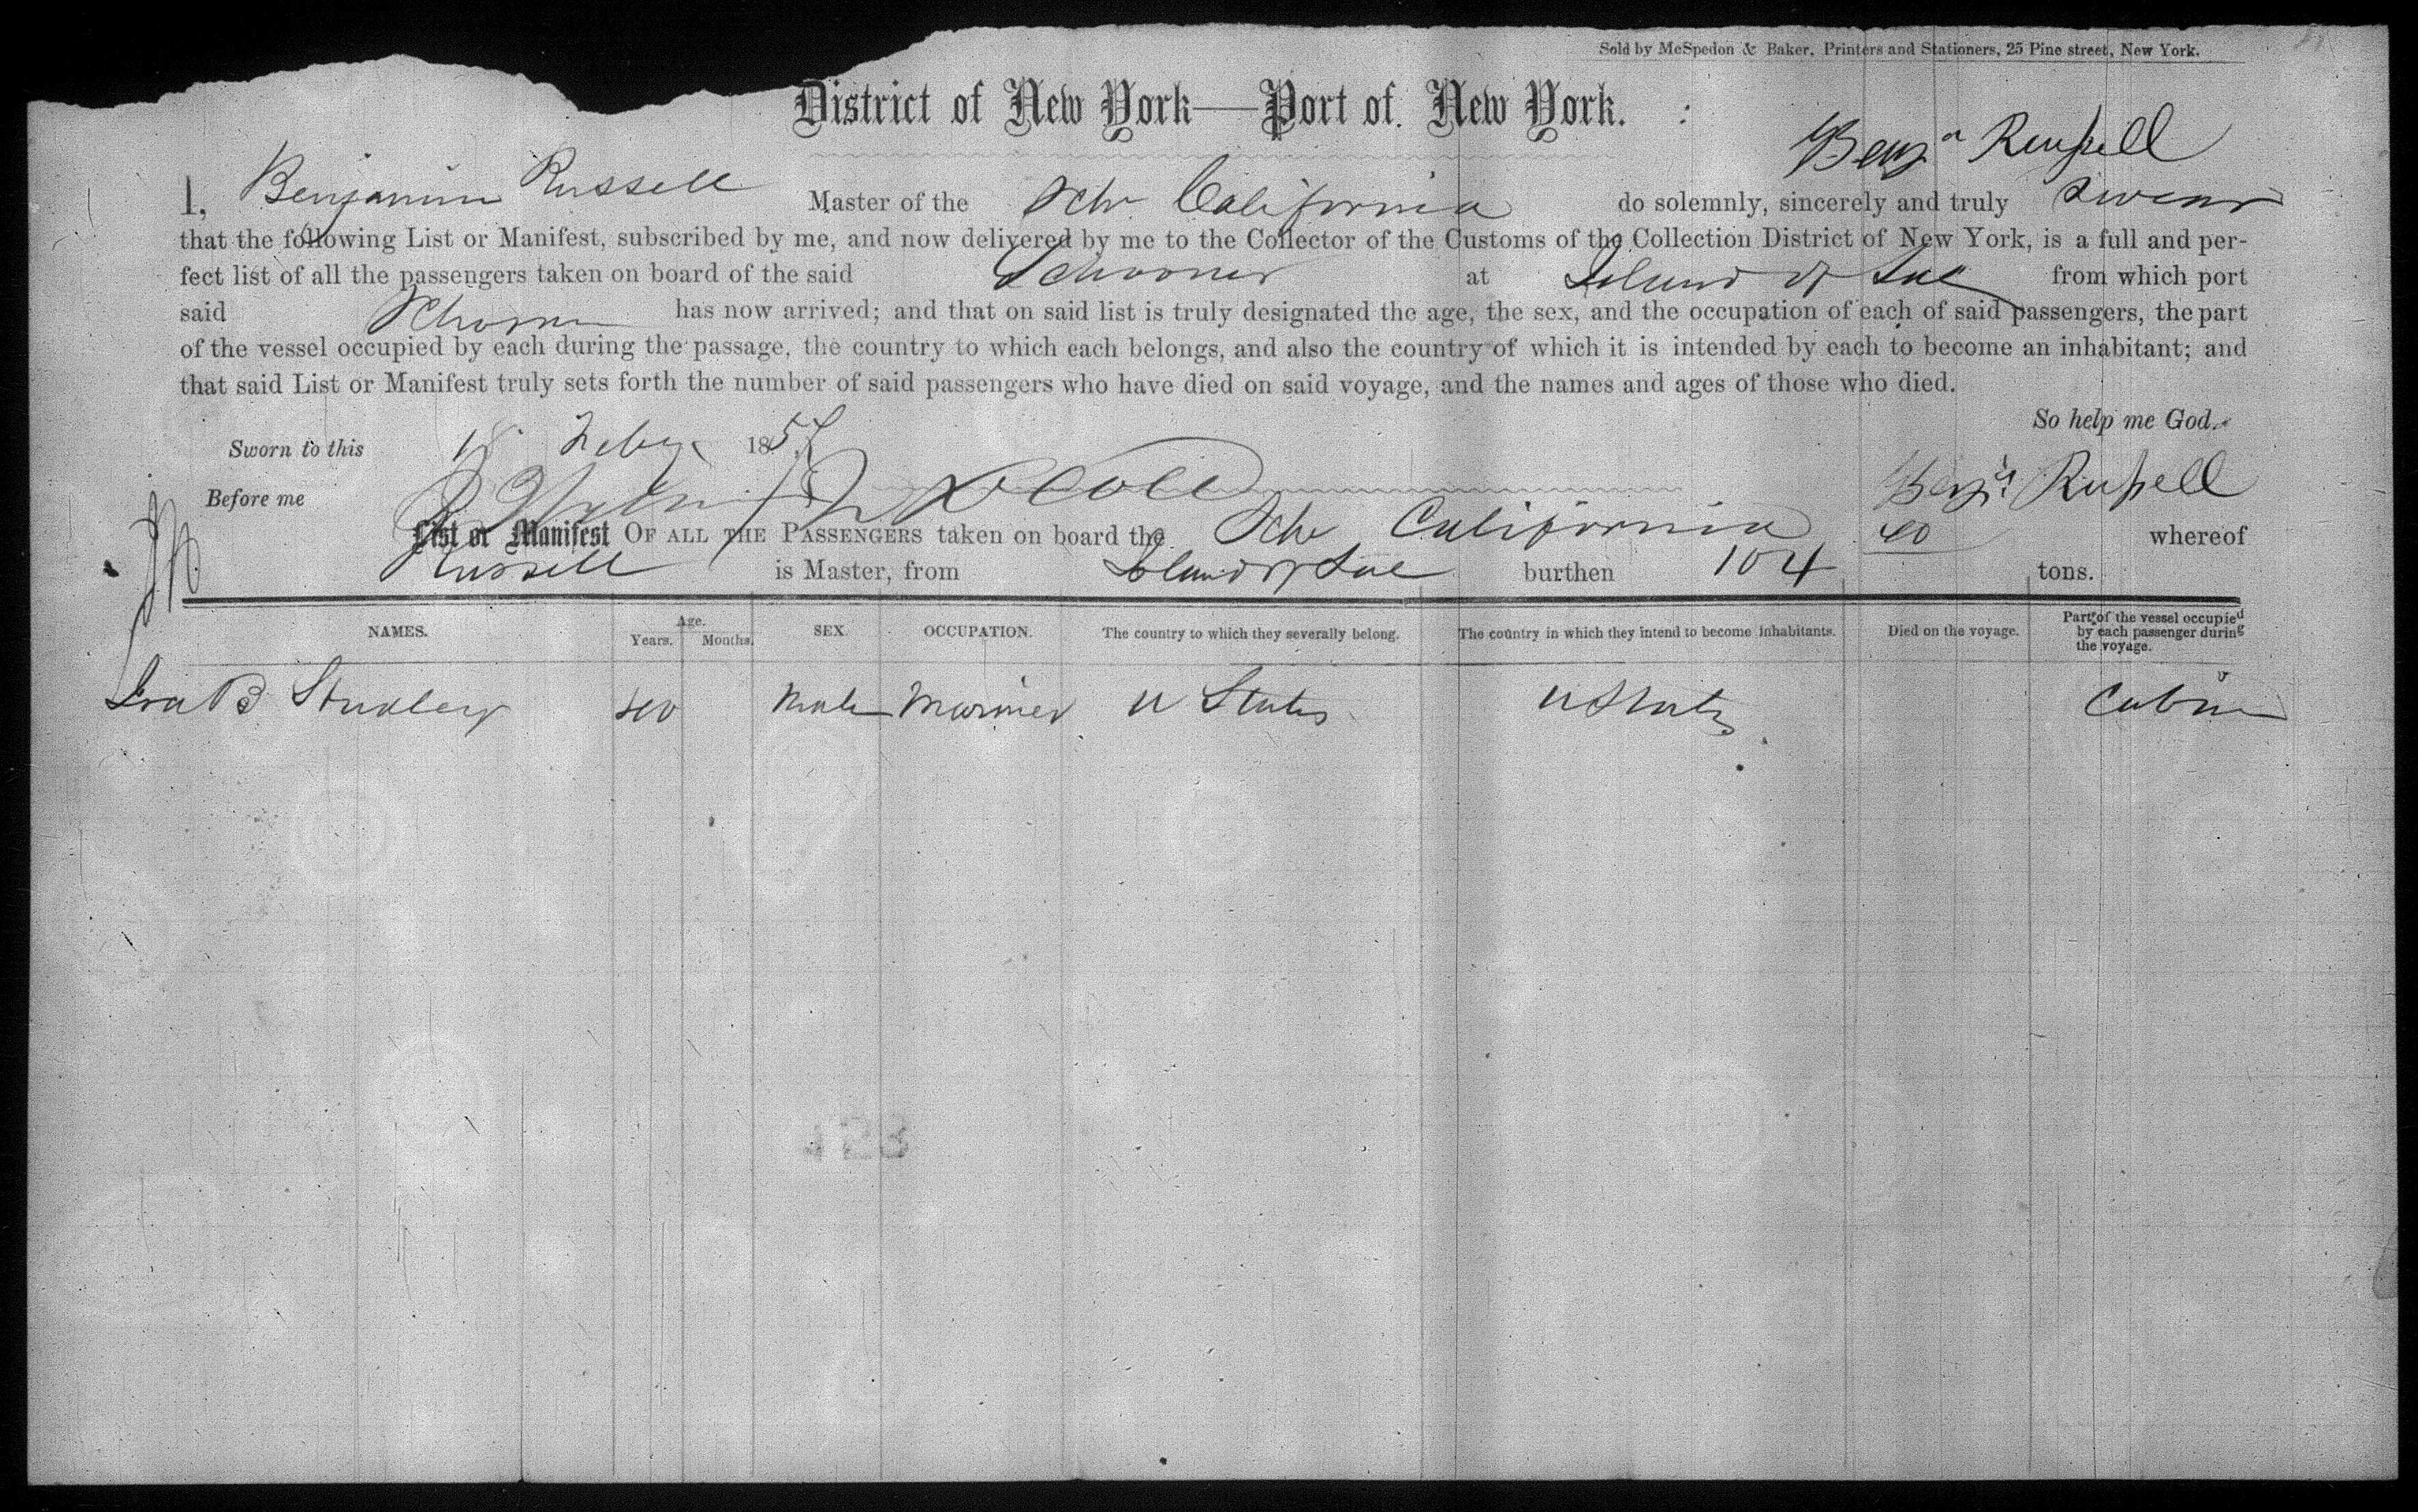 Sold by McSpedon & Baker, Printers and Stationers, 25 Pine street, New York.
District of New York—Port of New York.
Benjn Russell
I, Benjamin Russell Master of the Schr California do solemnly, sincerely and truly swear
that the following List or Manifest, subscribed by me, and now delivered by me to the Collector of the Customs of the Collection District of New York, is a full and per-
fect list of all the passengers taken on board of the said Schooner at Island of Sal from which port
said Schooner has now arrived; and that on said list is truly designated the age, the sex, and the occupation of each of said passengers, the part
of the vessel occupied by each during the passage, the country to which each belongs, and also the country of which it is intended by each to become an inhabitant; and
that said List or Manifest truly sets forth the number of said passengers who have died on said voyage, and the names and ages of those who died.
So help me God.
Sworn to this 18 Feby 1857
Before me Benjn Russell
List or Manifest OF ALL THE PASSENGERS taken on board the Schr California whereof
Russell is Master, from Island of Sal burthen 104 40 tons.
NAMES. Age. Years. Months. SEX. OCCUPATION. The country to which they severally belong. The country in which they intend to become inhabitants. Died on the voyage. Part of the vessel occupied by each passenger during the voyage.
Ira B Studley 40 Male Mariner U States U States Cabin